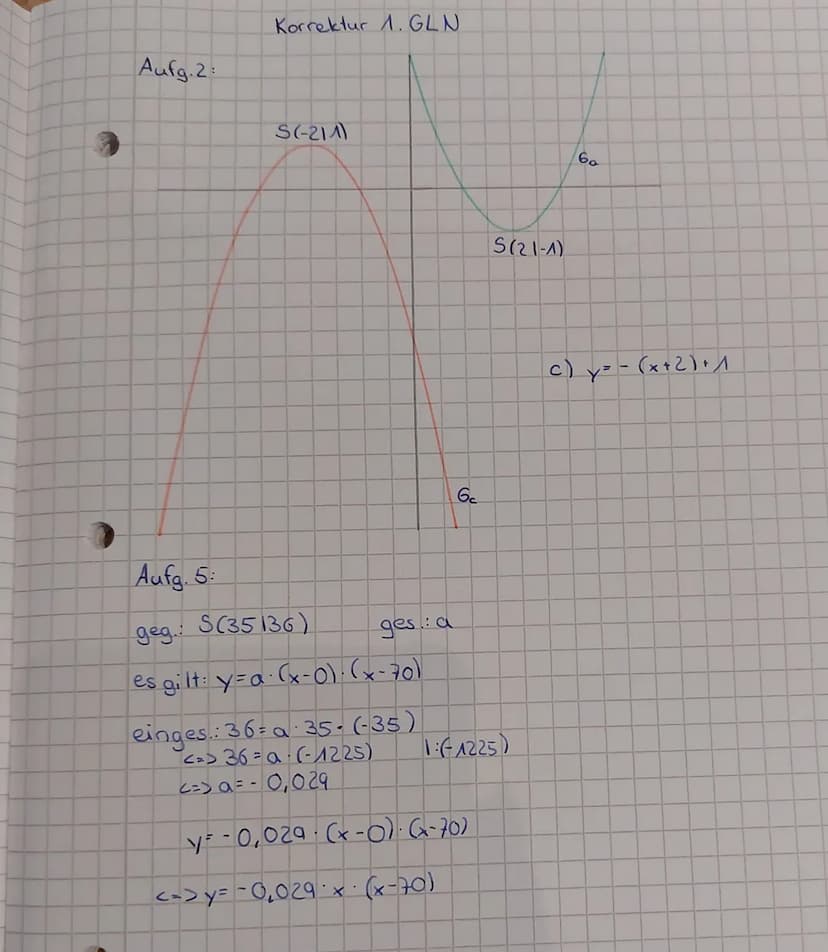 Korrektur 1. GLN
Aufg. 2:
S(-2|1)
Ga
S(2|-1)
c) y = - (x+2) + 1
Gc
Aufg. 5:
geg.: S(35|36) ges.: a
es gilt: y = a · (x-0) · (x-70)
einges.: 36 = a · 35 · (-35)
<=> 36 = a · (-1225) |:(-1225)
<=> a = - 0,029
y = - 0,029 · (x-0) · (x-70)
<=> y = -0,029 · x · (x-70)